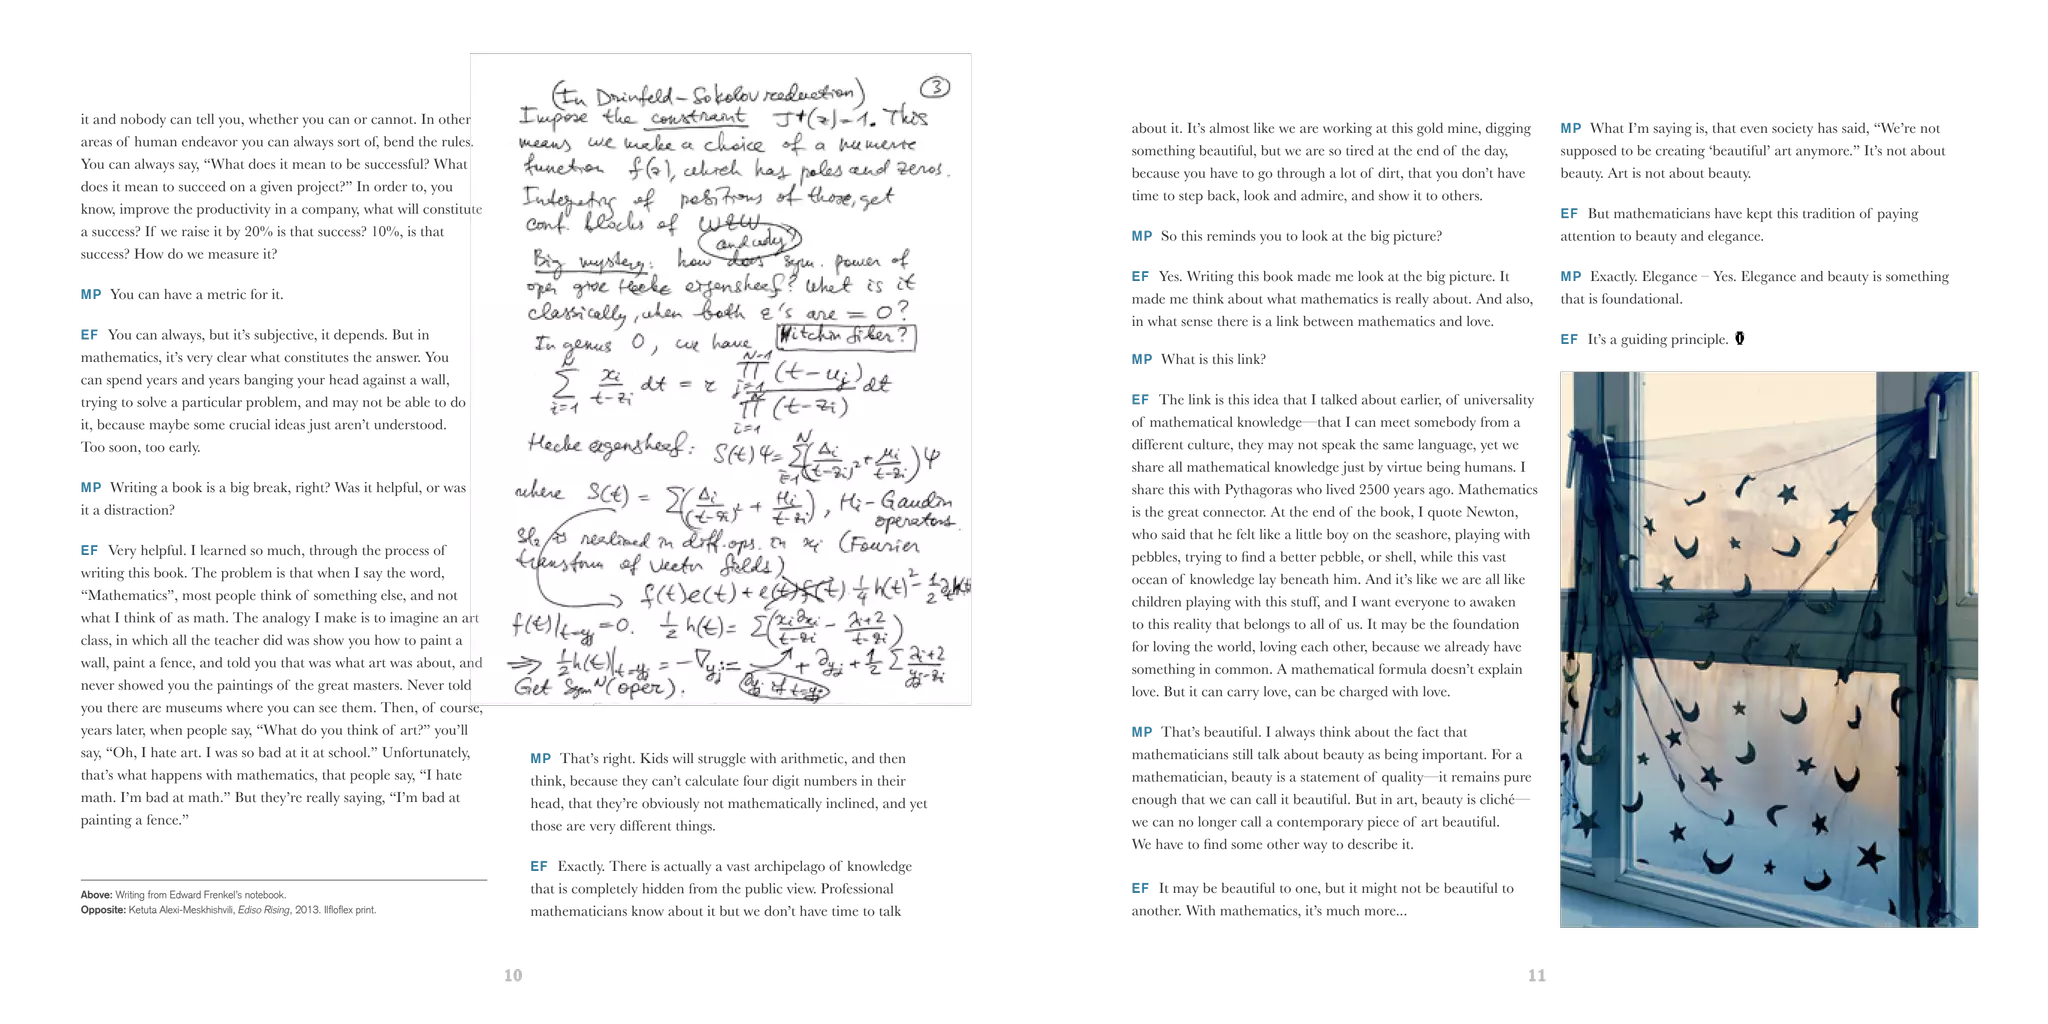 it and nobody can tell you, whether you can or cannot. In other
areas of human endeavor you can always sort of, bend the rules.
You can always say, “What does it mean to be successful? What
does it mean to succeed on a given project?” In order to, you
know, improve the productivity in a company, what will constitute
a success? If we raise it by 20% is that success? 10%, is that
success? How do we measure it?
MP You can have a metric for it.
EF You can always, but it’s subjective, it depends. But in
mathematics, it’s very clear what constitutes the answer. You
can spend years and years banging your head against a wall,
trying to solve a particular problem, and may not be able to do
it, because maybe some crucial ideas just aren’t understood.
Too soon, too early.
MP Writing a book is a big break, right? Was it helpful, or was
it a distraction?
EF Very helpful. I learned so much, through the process of
writing this book. The problem is that when I say the word,
“Mathematics”, most people think of something else, and not
what I think of as math. The analogy I make is to imagine an art
class, in which all the teacher did was show you how to paint a
wall, paint a fence, and told you that was what art was about, and
never showed you the paintings of the great masters. Never told
you there are museums where you can see them. Then, of course,
years later, when people say, “What do you think of art?” you’ll
say, “Oh, I hate art. I was so bad at it at school.” Unfortunately,
that’s what happens with mathematics, that people say, “I hate
math. I’m bad at math.” But they’re really saying, “I’m bad at
painting a fence.”
Above: Writing from Edward Frenkel’s notebook.
Opposite: Ketuta Alexi-Meskhishvili, Ediso Rising, 2013. Ilfloflex print.
(In Drinfeld–Sokolov reduction) 3
Impose the constraint J⁺(z)=1. This
means we make a choice of a numeric
function f(z), which has poles and zeros.
Integrating of positions of those, get
conf. blocks of WZW
and why?
Big mystery: how does sym. power of
oper give Hecke eigensheaf? What is it
classically, when both ε's are = 0?
In genus 0, we have Hitchin fiber?
N Σ i=1 xi/(t-zi) dt = r N-1 Π j=1 (t-uj) / N Π i=1 (t-zi) dt
Hecke eigensheaf: S(t)Ψ = N Σ i=1 (Δi/(t-zi)² + μi/(t-zi)) Ψ
where S(t) = Σ(Δi/(t-zi)² + Hi/(t-zi)), Hi – Gaudin
operators.
sl₂ is realized in diff. ops. in xi (Fourier
transform of vector fields)
f(t)e(t) + 1/4 h(t)² - 1/2
f(t)|t=yj = 0. 1/2 h(t) = Σ(xi∂xi/(t-zi) - λi+2/(t-zi))
⇒ 1/2 h(t)|t=yj = -∇yj := + ∂yj + 1/2 Σ λi+2/(yj-zi)
Get Symᴺ(oper).
MP That’s right. Kids will struggle with arithmetic, and then
think, because they can’t calculate four digit numbers in their
head, that they’re obviously not mathematically inclined, and yet
those are very different things.
EF Exactly. There is actually a vast archipelago of knowledge
that is completely hidden from the public view. Professional
mathematicians know about it but we don’t have time to talk
10
about it. It’s almost like we are working at this gold mine, digging
something beautiful, but we are so tired at the end of the day,
because you have to go through a lot of dirt, that you don’t have
time to step back, look and admire, and show it to others.
MP So this reminds you to look at the big picture?
EF Yes. Writing this book made me look at the big picture. It
made me think about what mathematics is really about. And also,
in what sense there is a link between mathematics and love.
MP What is this link?
EF The link is this idea that I talked about earlier, of universality
of mathematical knowledge—that I can meet somebody from a
different culture, they may not speak the same language, yet we
share all mathematical knowledge just by virtue being humans. I
share this with Pythagoras who lived 2500 years ago. Mathematics
is the great connector. At the end of the book, I quote Newton,
who said that he felt like a little boy on the seashore, playing with
pebbles, trying to find a better pebble, or shell, while this vast
ocean of knowledge lay beneath him. And it’s like we are all like
children playing with this stuff, and I want everyone to awaken
to this reality that belongs to all of us. It may be the foundation
for loving the world, loving each other, because we already have
something in common. A mathematical formula doesn’t explain
love. But it can carry love, can be charged with love.
MP That’s beautiful. I always think about the fact that
mathematicians still talk about beauty as being important. For a
mathematician, beauty is a statement of quality—it remains pure
enough that we can call it beautiful. But in art, beauty is cliché—
we can no longer call a contemporary piece of art beautiful.
We have to find some other way to describe it.
EF It may be beautiful to one, but it might not be beautiful to
another. With mathematics, it’s much more...
MP What I’m saying is, that even society has said, “We’re not
supposed to be creating ‘beautiful’ art anymore.” It’s not about
beauty. Art is not about beauty.
EF But mathematicians have kept this tradition of paying
attention to beauty and elegance.
MP Exactly. Elegance – Yes. Elegance and beauty is something
that is foundational.
EF It’s a guiding principle.
11